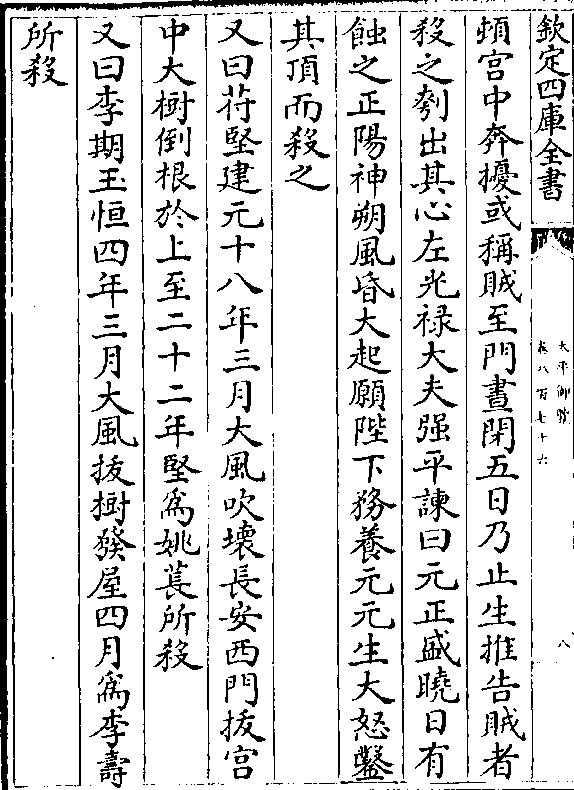 欽定四庫全書
太平御覽
卷八百七十六
八
頓宫中奔擾或稱賊至門晝閉五日乃止生推告賊者
殺之刳出其心左光禄大夫强平諫曰元正盛曉日有
蝕之正陽神朔風昏大起願陛下務養元元生大怒鑿
其頂而殺之
又曰苻堅建元十八年三月大風吹壞長安西門拔宫
中大樹倒根於上至二十二年堅為姚萇所殺
又曰李期玉恒四年三月大風拔樹發屋四月為李壽
所殺